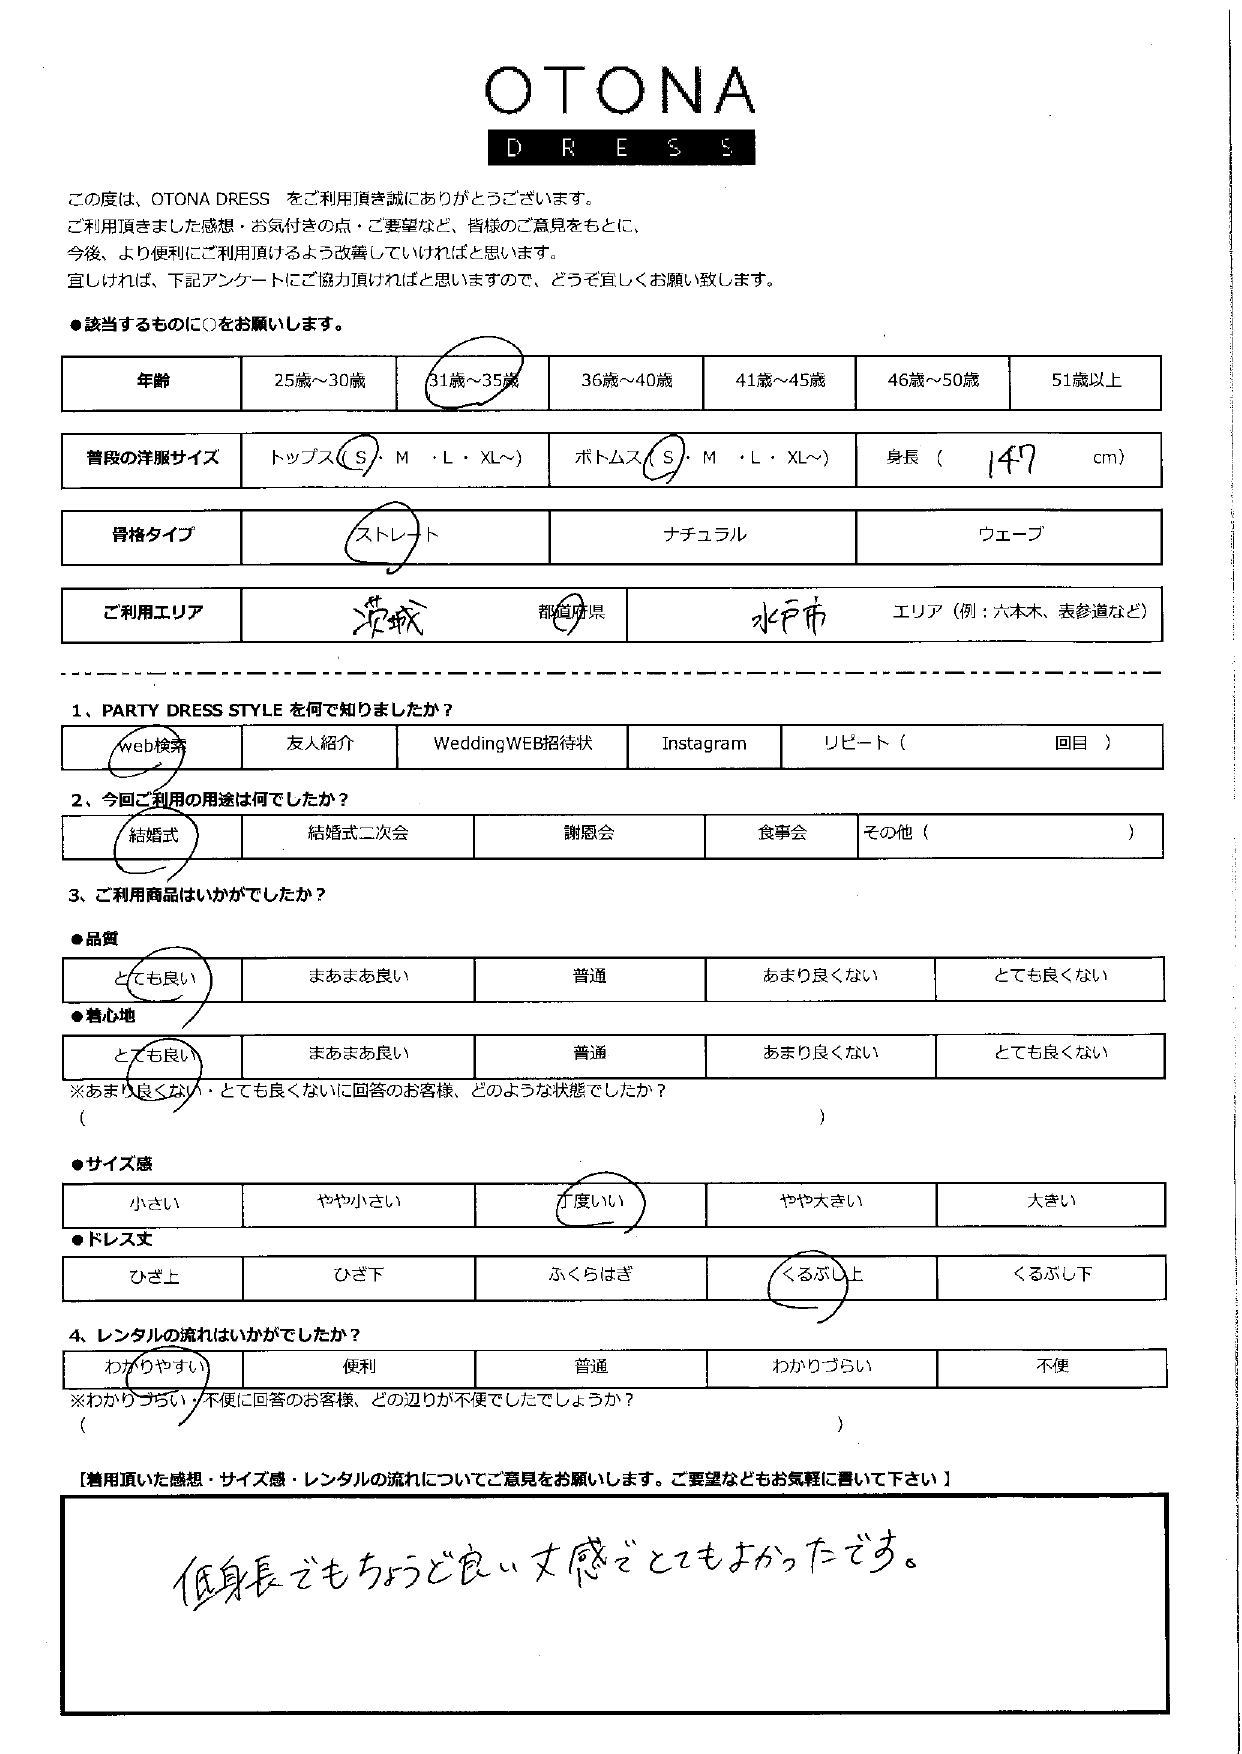 OTONA
DRESS
この度は、OTONA DRESS　をご利用頂き誠にありがとうございます。
ご利用頂きました感想・お気付きの点・ご要望など、皆様のご意見をもとに、
今後、より便利にご利用頂けるよう改善していければと思います。
宜しければ、下記アンケートにご協力頂ければと思いますので、どうぞ宜しくお願い致します。
●該当するものに○をお願いします。
年齢 25歳～30歳 31歳～35歳 36歳～40歳 41歳～45歳 46歳～50歳 51歳以上
普段の洋服サイズ トップス( S ・ M ・L ・ XL～) ボトムス( S ・ M ・L ・ XL～) 身長 ( 147 cm)
骨格タイプ ストレート ナチュラル ウェーブ
ご利用エリア 茨城 都道府県 水戸市 エリア（例：六本木、表参道など）
1、PARTY DRESS STYLE を何で知りましたか？
web検索 友人紹介 WeddingWEB招待状 Instagram リピート（ 回目 ）
2、今回ご利用の用途は何でしたか？
結婚式 結婚式二次会 謝恩会 食事会 その他（ ）
3、ご利用商品はいかがでしたか？
●品質
とても良い まあまあ良い 普通 あまり良くない とても良くない
●着心地
とても良い まあまあ良い 普通 あまり良くない とても良くない
※あまり良くない・とても良くないに回答のお客様、どのような状態でしたか？
（ ）
●サイズ感
小さい やや小さい 丁度いい やや大きい 大きい
●ドレス丈
ひざ上 ひざ下 ふくらはぎ くるぶし上 くるぶし下
4、レンタルの流れはいかがでしたか？
わかりやすい 便利 普通 わかりづらい 不便
※わかりづらい・不便に回答のお客様、どの辺りが不便でしたでしょうか？
（ ）
【着用頂いた感想・サイズ感・レンタルの流れについてご意見をお願いします。ご要望などもお気軽に書いて下さい 】
低身長でもちょうど良い丈感でとてもよかったです。